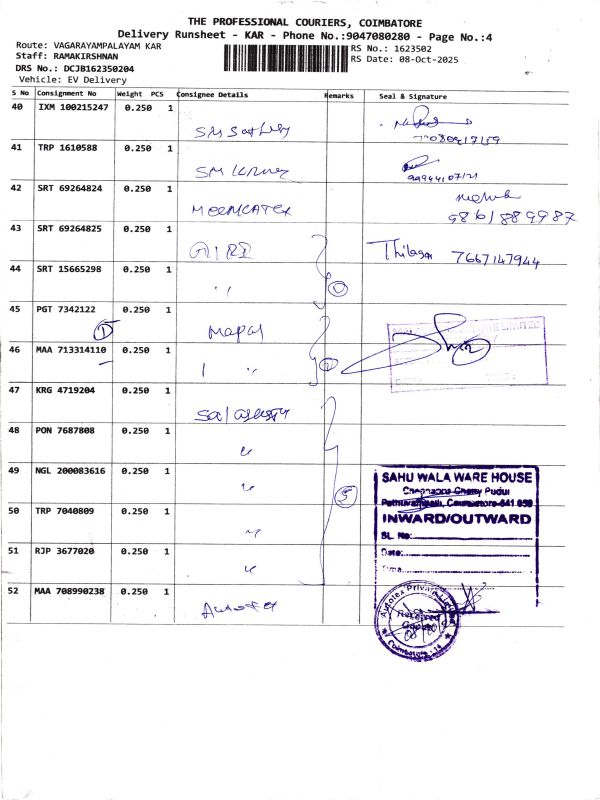 THE PROFESSIONAL COURIERS, COIMBATORE
Delivery Runsheet - KAR - Phone No.:9047080280 - Page No.:4
Route: VAGARAYAMPALAYAM KAR
RS No.: 1623502
Staff: RAMAKIRSHNAN
RS Date: 08-Oct-2025
DRS No.: DCJB162350204
Vehicle: EV Delivery
S No Consignment No Weight PCS Consignee Details Remarks Seal & Signature
40 IXM 100215247 0.250 1
41 TRP 1610588 0.250 1
42 SRT 69264824 0.250 1
43 SRT 69264825 0.250 1 GIRI Thilagar 7667147944
44 SRT 15665298 0.250 1 "
45 PGT 7342122 0.250 1
46 MAA 713314110 0.250 1 "
47 KRG 4719204 0.250 1
48 PON 7687808 0.250 1 "
49 NGL 200083616 0.250 1 "
50 TRP 7040809 0.250 1 "
51 RJP 3677020 0.250 1 "
5
SAHU WALA WARE HOUSE
INWARD/OUTWARD
SL. No:
Date:
52 MAA 708990238 0.250 1
Autotex Private
Received
Coimbatore - 14